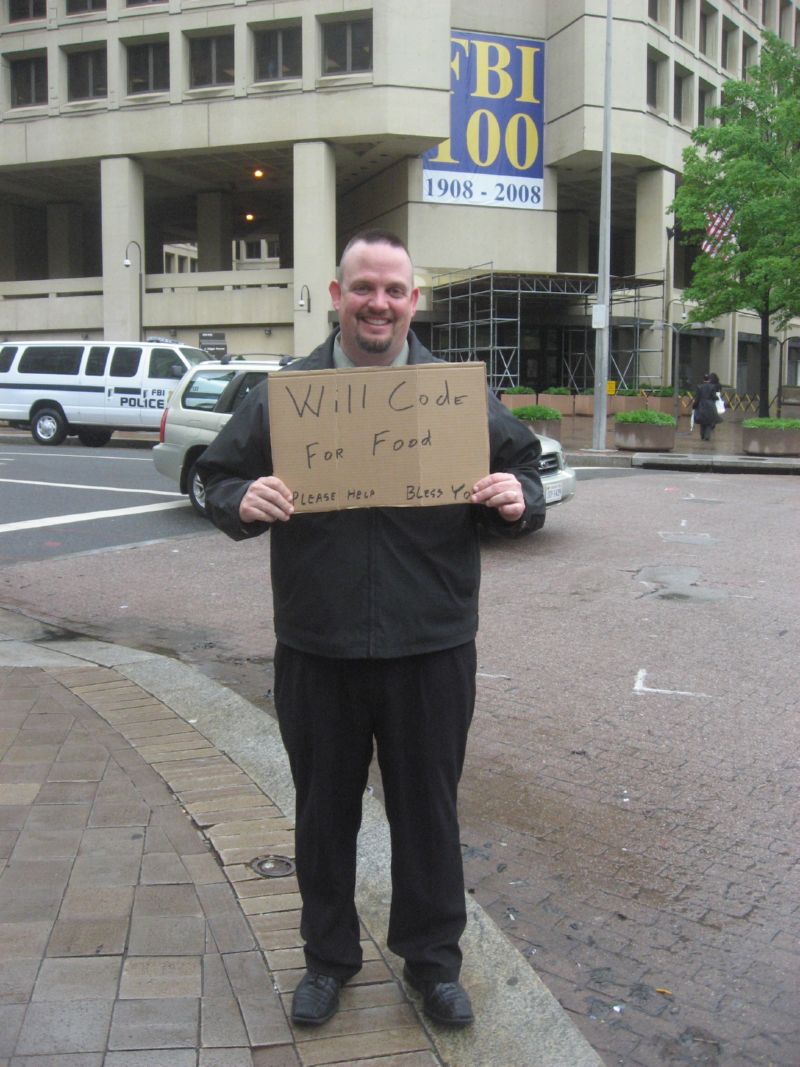 FBI
100
1908 - 2008
FBI
POLICE
Will Code
For Food
Please Help Bless Yo